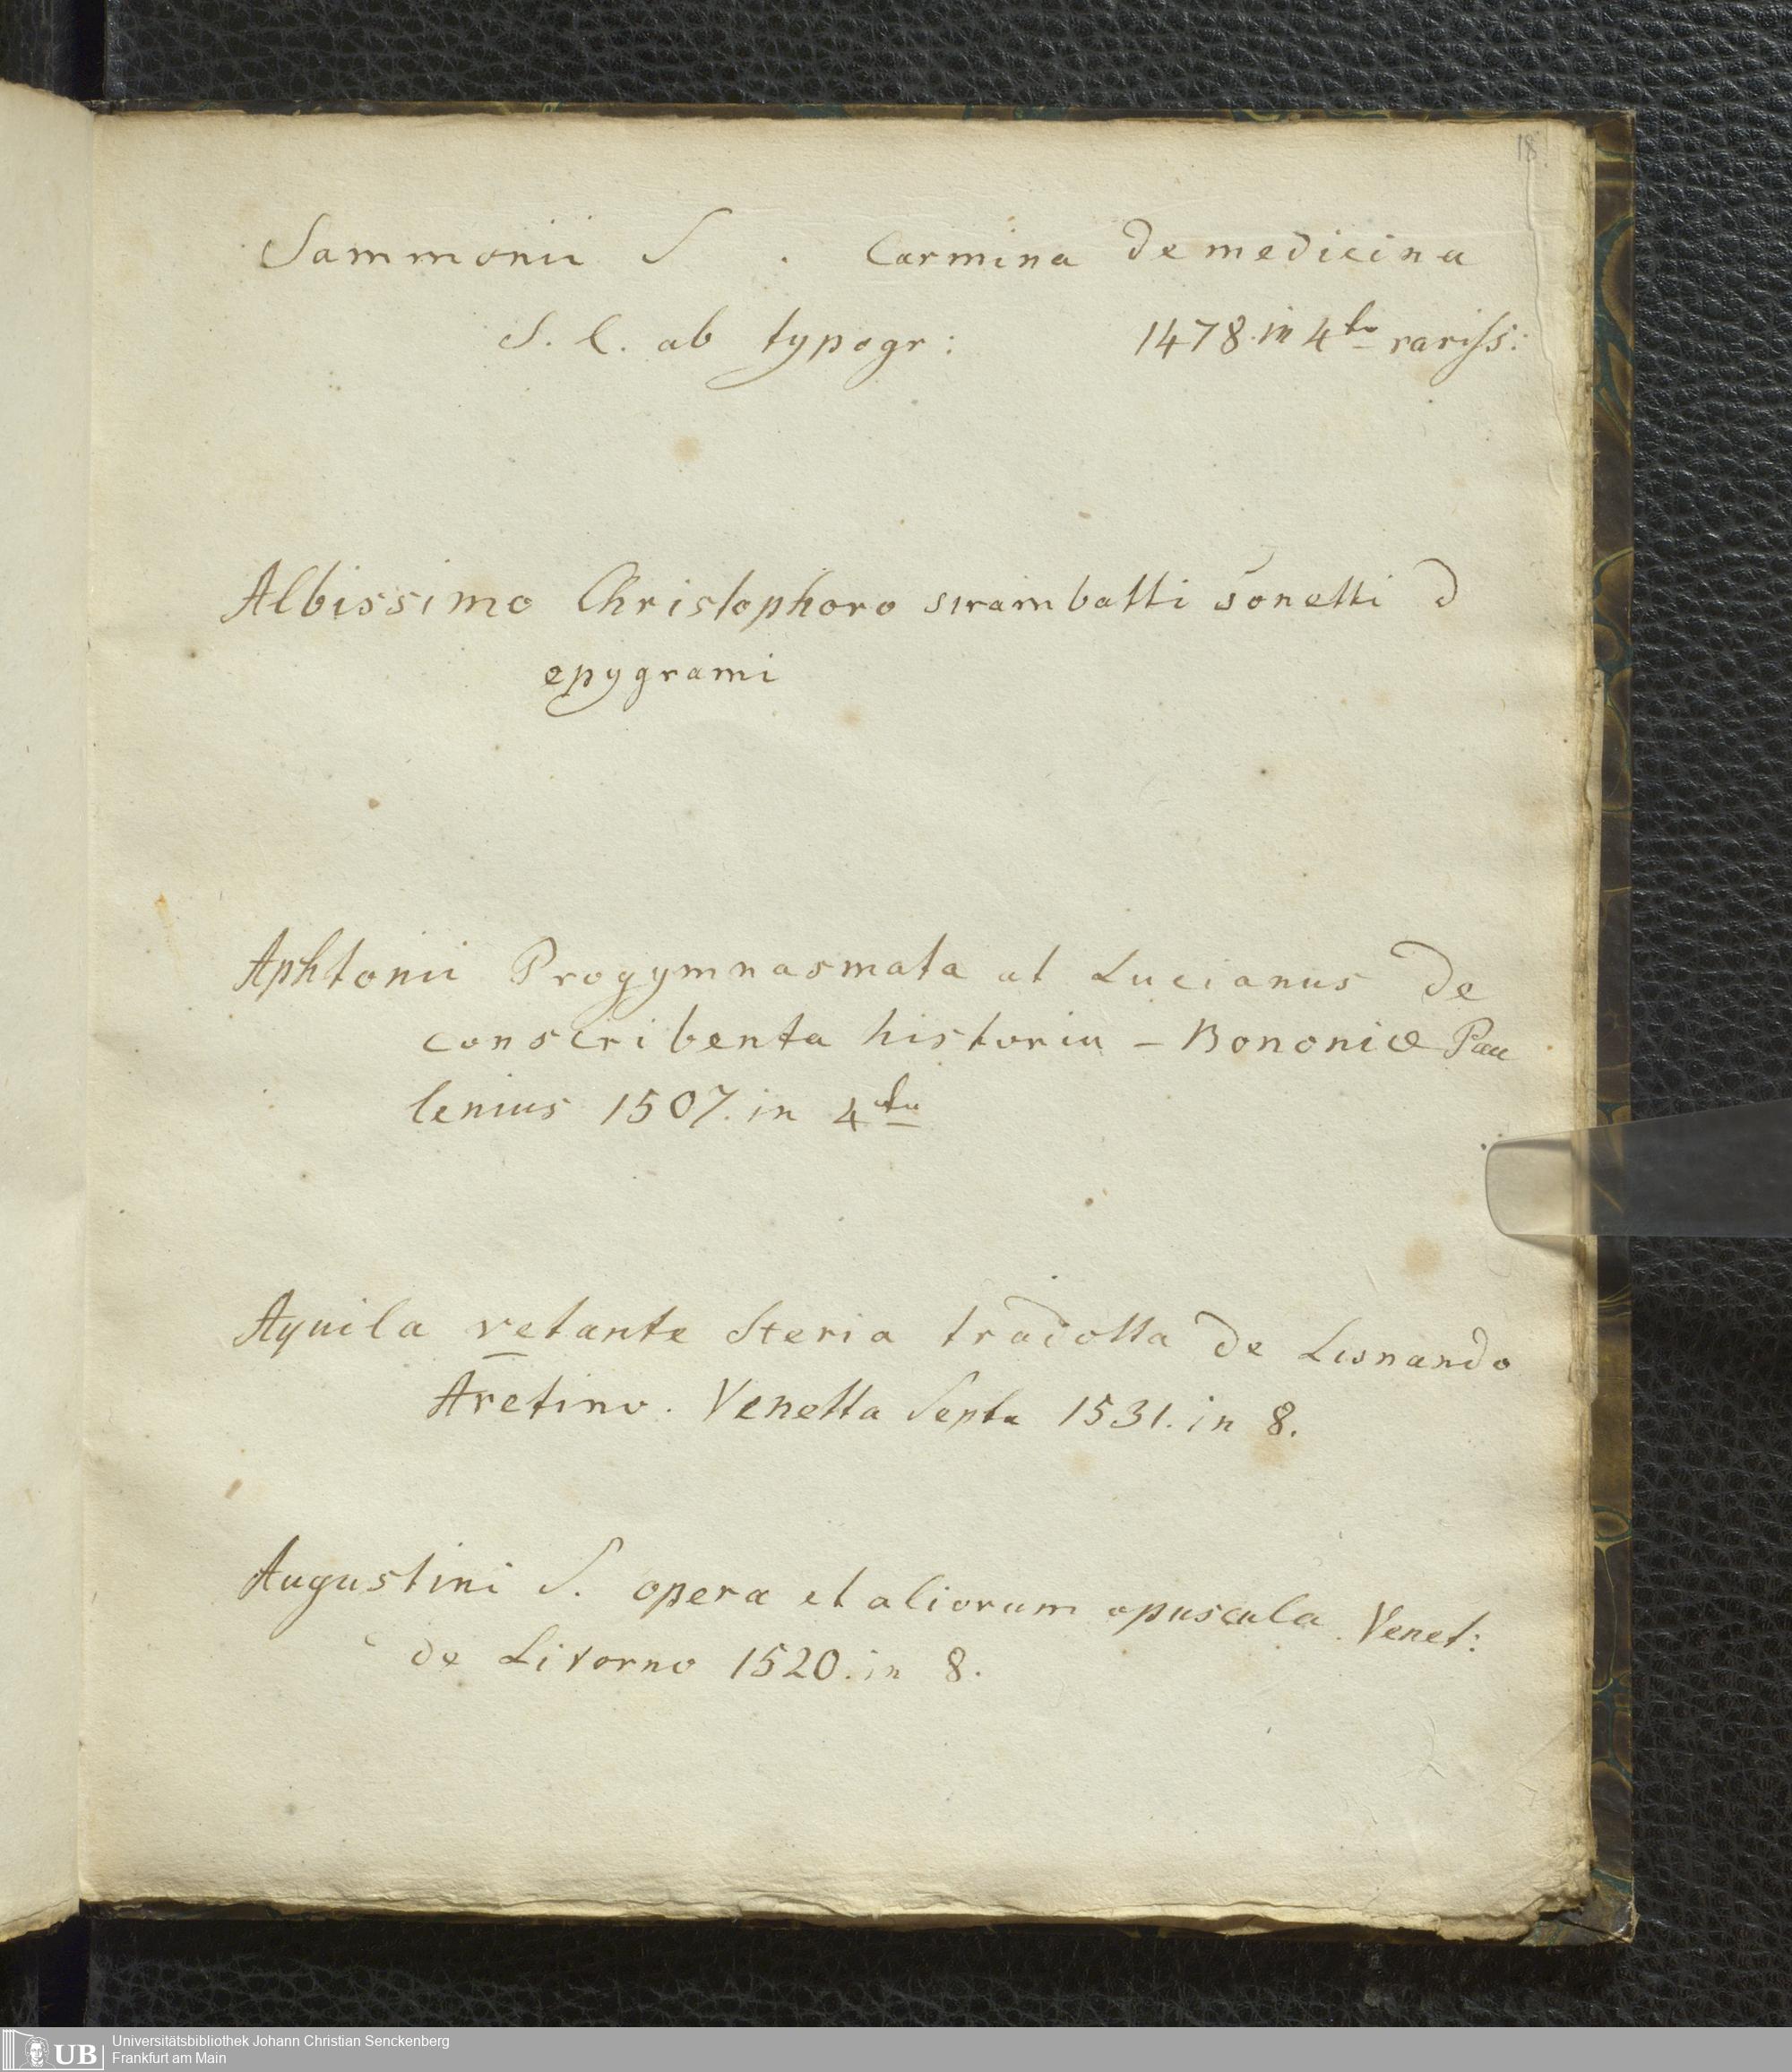 18.
Sammonii S . Carmina de medicina
S. l. ab typogr: 1478. in 4to rariss:
Albissimo Christophoro strambatti sonetti d
epygrami
Aphtonii Progymnasmata at Lucianus de
conscribenta historia – Bononiæ Pau
lenius 1507. in 4to
Aquila vetante Steria tradotta de Lionando
Aretino. Venetta Septa 1531. in 8.
Augustini S. opera et aliorum opuscula. Venet:
de Litorno 1520. in 8.
UB Universitätsbibliothek Johann Christian Senckenberg
Frankfurt am Main